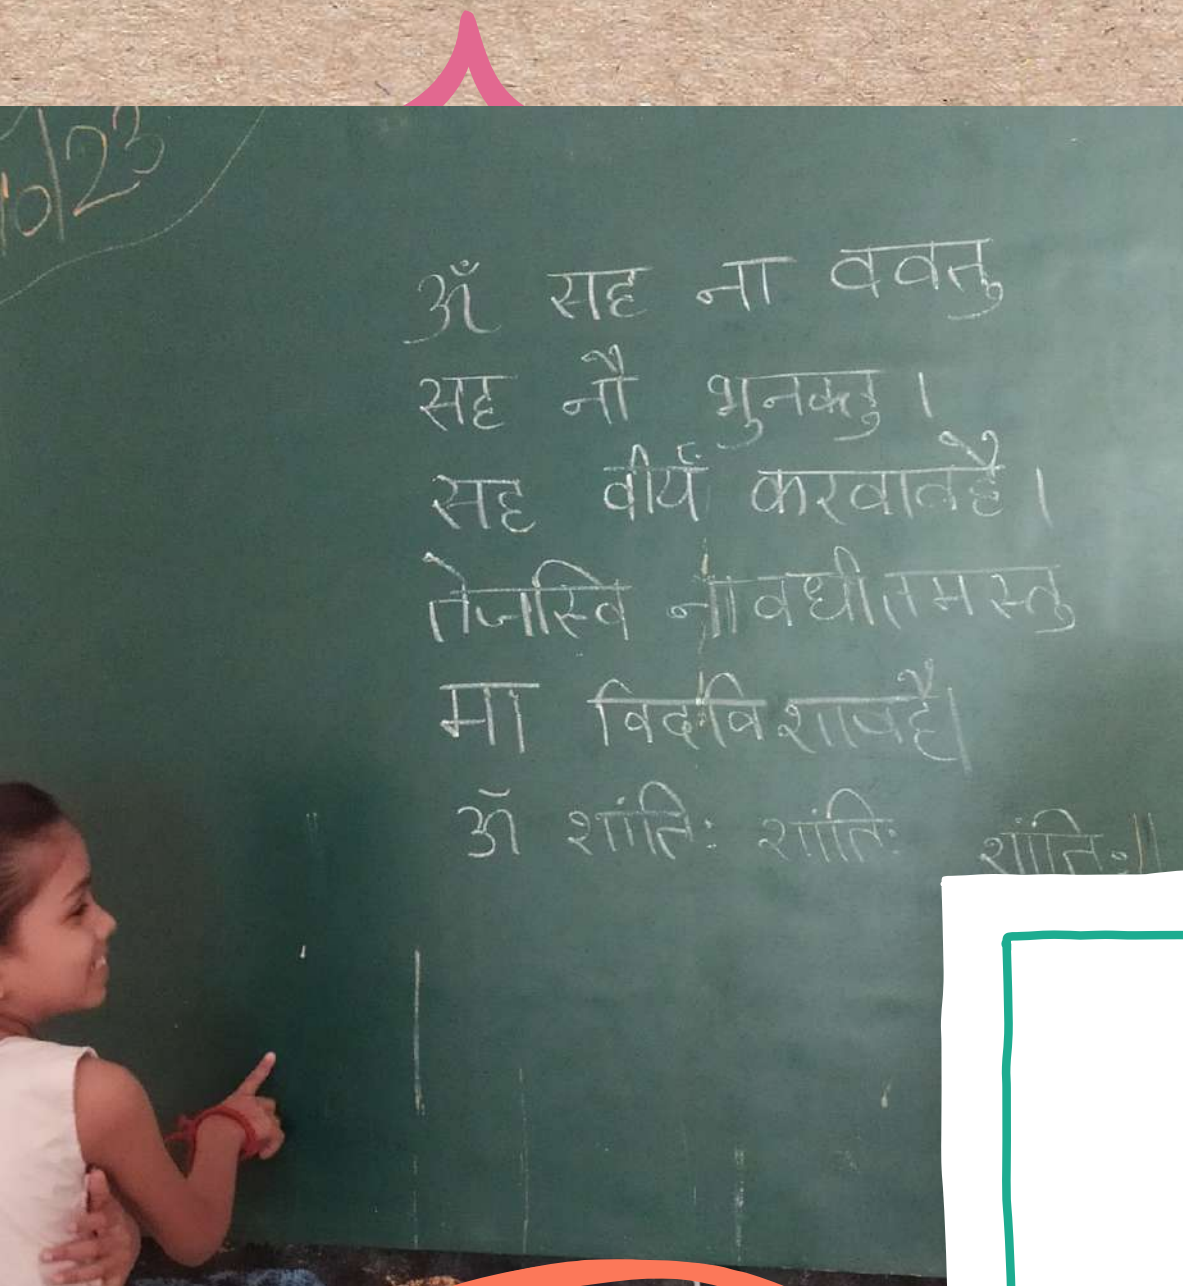 10/23
ॐ सह ना ववतु
सह नौ भुनक्तु।
सह वीर्यं करवावहै।
तेजस्वि नावधीतमस्तु
मा विदविशावहै।
ॐ शांतिः शांतिः शांतिः॥